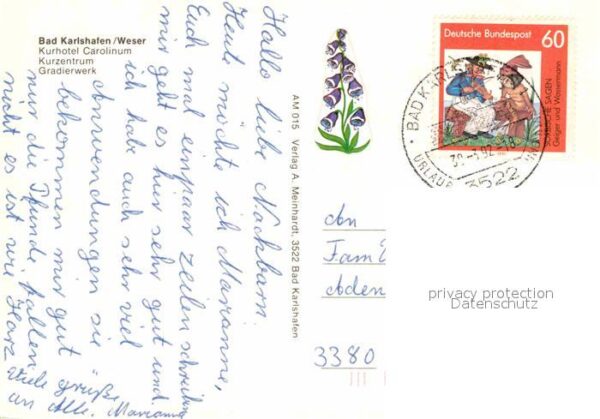 Bad Karlshafen/Weser
Kurhotel Carolinum
Kurzentrum
Gradierwerk
Hallo liebe Nachbarn.
Heut möchte ich Marianne,
Euch mal einpaar Zeilen schreiben
mir geht es hier sehr gut und
ich habe auch sehr viel
Anwendungen sie
bekommen mir gut
nur die Pfunde fallen
nicht es ist wie Harz
Viele grüße
an Alle. Marianne
AM 015 Verlag A. Meinhardt, 3522 Bad Karlshafen
Deutsche Bundespost 60
SORBISCHE SAGEN
Geiger und Wassermann
BAD KARL
3522
An
Fam
Aden
3380
privacy protection
Datenschutz